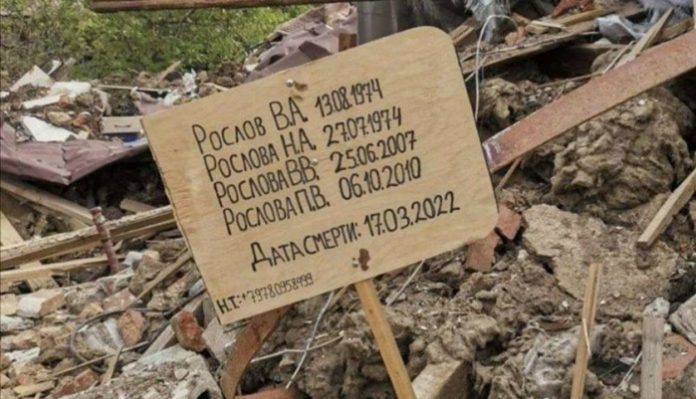 Рослов В.А. 13.08.1974
Рослова Н.А. 27.07.1974
Рослова В.В. 25.06.2007
Рослова П.В. 06.10.2010
Дата смерти: 17.03.2022
Н.Т.: +79780958999